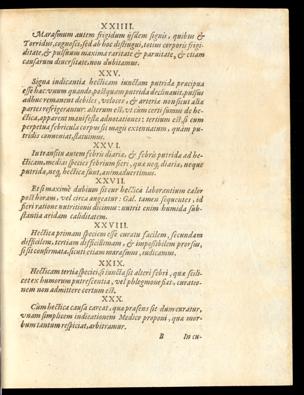 XXIIII.
Marasmum autem frigidum ijsdem signis, quibus &
Torridus, cognosci, sed ab hoc distingui, totius corporis frigi-
ditate, & pulsuum maxima raritate & paruitate, & etiam
causarum diuersitate, non dubitamus.
XXV.
Signa indicantia hecticam iunctam putridæ præcipua
esse hæc: vnum quando, postquam putrida declinauit, pulsus
adhuc remanent debiles, veloces, & arteria non sicut aliæ
partes refrigerantur: alterum est, vt cum certis signis hec-
tica, apparent manifesta adnotationes: tertium est, si cum
perpetua febricula corpus sit magis extenuatum, quàm pu-
tridis conueniat, statuimus.
XXVI.
In transitu autem febris diariæ, & febris putridæ ad he-
cticam, medias species febrium fieri, quæ neq; diaria, neque
putrida, neq; hectica sunt, animaduertimus.
XXVII.
Etsi maximè dubium sit cur hectica laborantium calor
post horam, vel circa augeatur: Gal. tamen sequutus, id
fieri ratione nutritionis dicimus: nutrit enim humida sub-
stantia aridam caliditatem.
XXVIII.
Hectica primam speciem esse curatu facilem, secundam
difficilem, tertiam difficillimam, & impossibilem prorsus,
si sit confirmata, sicuti etiam marasmus, iudicamus.
XXIX.
Hecticam tertiæ speciei, si iuncta sit alteri febri, quæ scili-
cet ex humorum putrescentia, vel phlegmone fiat, curatio-
nem non admittere certum est.
XXX.
Cùm hectica causa careat, quæ præsens sit dum curatur,
vnam simplicem indicationem Medico proponi, quæ mor-
bum tantum respiciat, arbitramur.
B In cu-